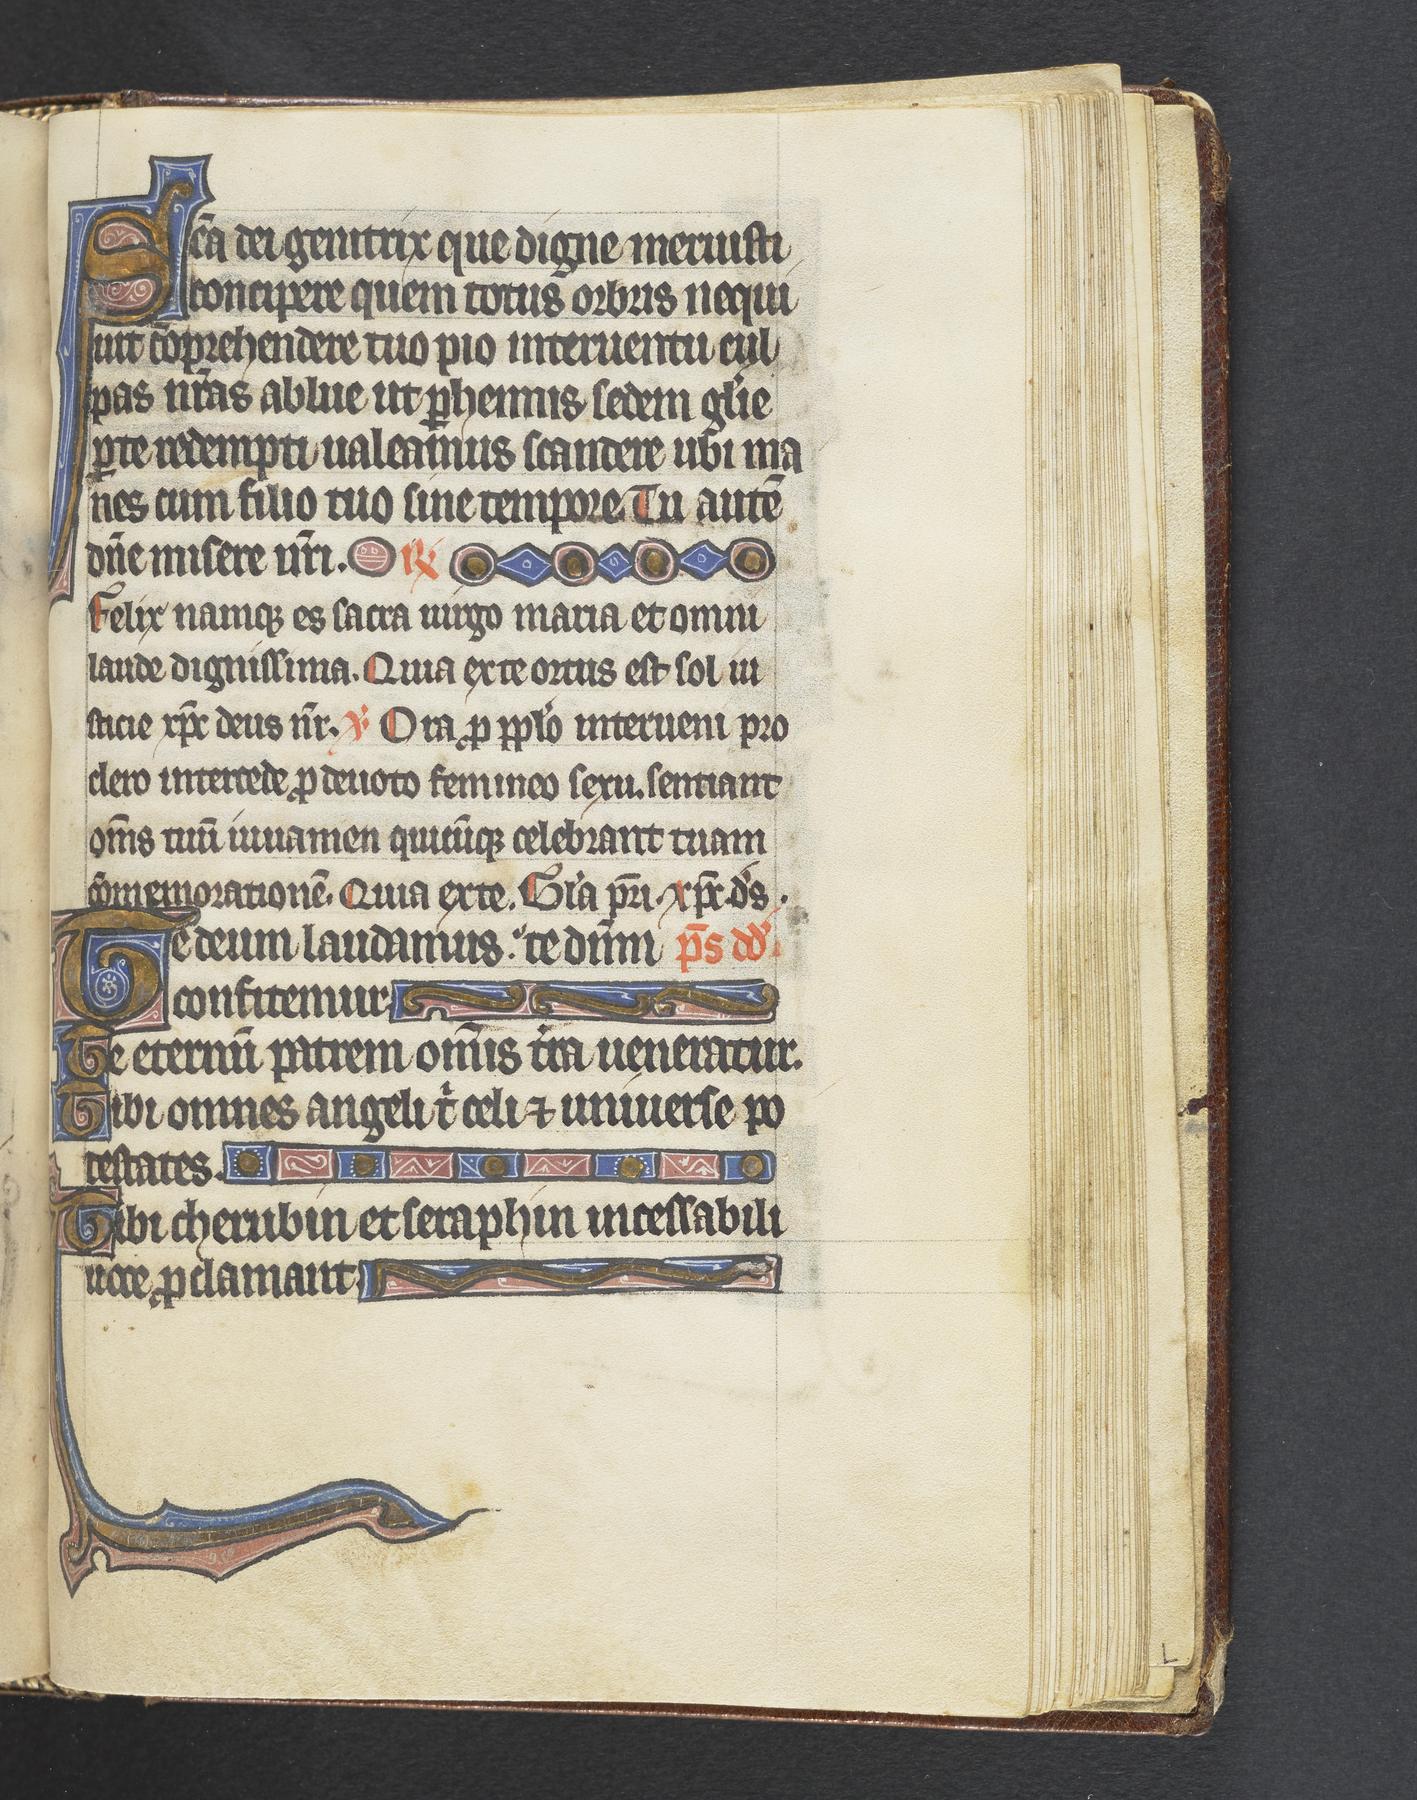 Sc̄a dei genitrix que digne meruisti
concipere quem totus orbis nequi
uit cōprehendere tuo pio interuentu cul
pas nr̄as ablue ut ꝑhennis sedem gl̄ie
ꝑ te redempti ualeamus scandere ubi ma
nes cum filio tuo sine tempore. Tu autē
dn̄e misere nr̄i. ℟
Felix namqꝫ es sacra uirgo maria et omni
laude dignissima. Quia ex te ortus est sol iu
sticie xp̄c deus nr̄. ℣ Ora ꝓ pp̄lo interueni pro
clero intercede ꝓ deuoto femineo sexu. sentiant
om̄s tuū iuuamen quicūqꝫ celebrant tuam
cōmemorationē. Quia ex te. Gl̄a pr̄i. xp̄c. d̄s.
Te deum laudamus. te dn̄m p̄s dd̄
confitemur
Te eternū patrem om̄is t̄ra ueneratur.
Tibi omnes angeli t̄ celi ⁊ uniuerse po
testates.
Tibi cherubin et seraphin incessabili
uoce ꝓclamant
L